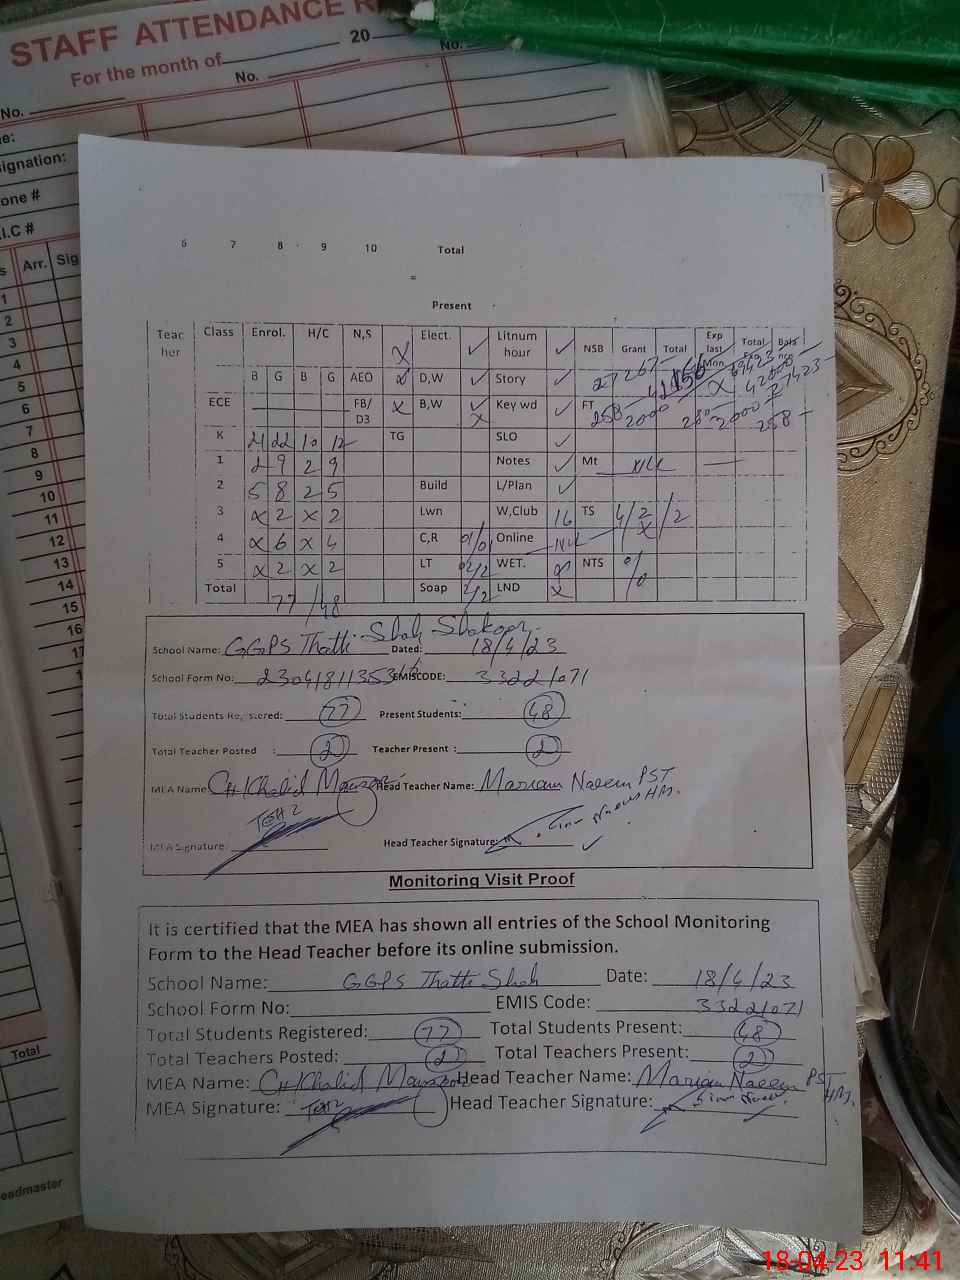 STAFF ATTENDANCE R
For the month of 20
No. No.
No.
signation:
one #
I.C #
Arr. Sig
1
2
3
4
5
6
7
8
9
10
11
12
13
14
15
16
Total
eadmaster
6 7 8 9 10 Total
=
Present
Teac her Class Enrol. H/C N,S X Elect. ✓ Litnum hour ✓ NSB Grant Total Exp last Mon Total
B G B G AEO D,W ✓ Story ✓ 27267
ECE FB/ D3 X B,W ✓ X Key wd ✓ FT 258 2000
K 21 22 10 12 TG SLO ✓
1 2 9 2 9 Notes ✓ Mt Nil
2 5 8 2 5 Build L/Plan ✓
3 X 2 X 2 Lwn W,Club 16 TS 4/2 X /2
4 X 6 X 4 C,R 01/01 Online Nil
5 X 2 X 2 LT 02/2 WET. NTS 0/0
Total 77 /48 Soap 2/2 LND X
School Name: GGPS Thatti Shah Shakoor. Dated: 18/4/23
School Form No: EMISCODE: 33221071
Total Students Registered: 77 Present Students: 48
Total Teacher Posted : 2 Teacher Present : 2
MEA Name: CH Khalid Head Teacher Name: Mariam Naeem PST
MEA Signature: Head Teacher Signature:
Monitoring Visit Proof
It is certified that the MEA has shown all entries of the School Monitoring
Form to the Head Teacher before its online submission.
School Name: GGPS Thatti Shah Date: 18/4/23
School Form No: EMIS Code: 33221071
Total Students Registered: 77 Total Students Present: 48
Total Teachers Posted: 2 Total Teachers Present: 2
MEA Name: CH Khalid Head Teacher Name: Mariam Naeem PST
MEA Signature: Head Teacher Signature:
18-04-23 11:41